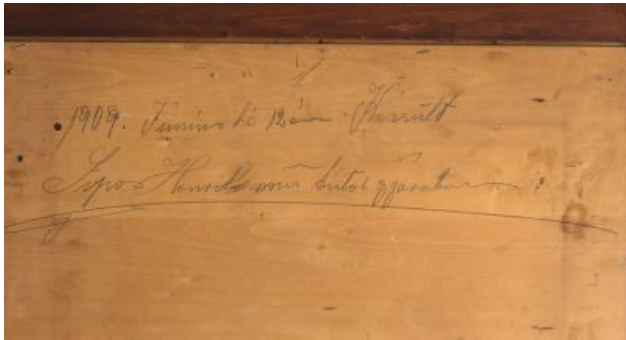 1909. Június hó 12én Készült
Sipos Henrik mű bútor gyárában